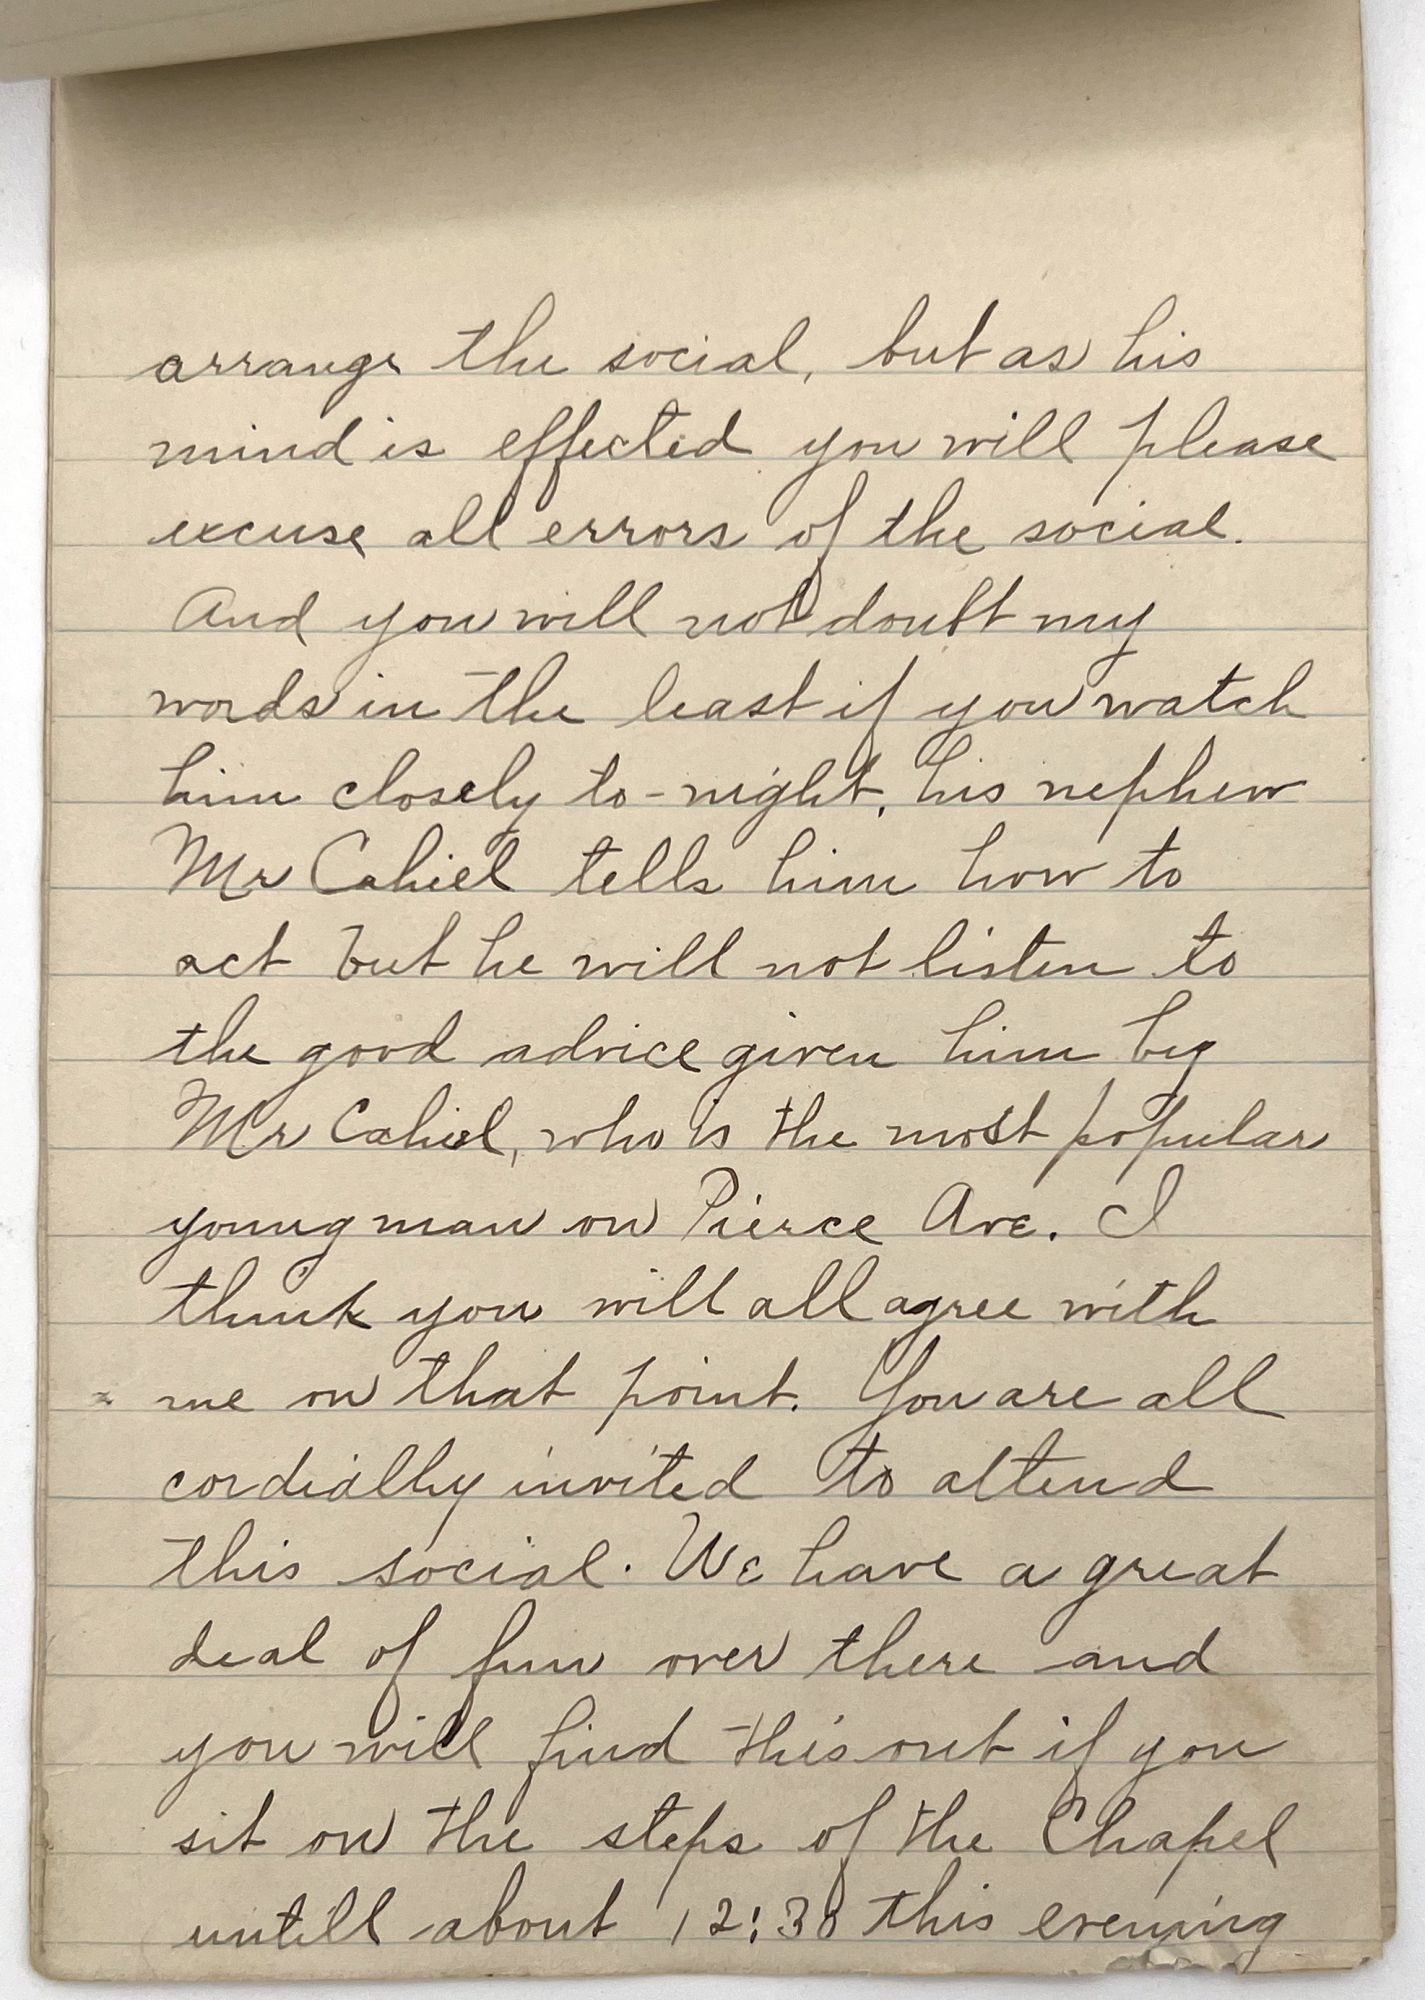 arrange the social, but as his
mind is effected you will please
excuse all errors of the social.
And you will not doubt my
words in the least if you watch
him closely to-night, his nephew
Mr Cahiel tells him how to
act but he will not listen to
the good advice given him by
Mr Cahiel, who is the most popular
young man on Pierce Ave. I
think you will all agree with
me on that point. You are all
cordially invited to attend
this social. We have a great
deal of fun over there and
you will find this out if you
sit on the steps of the Chapel
untill about 12:30 this evening